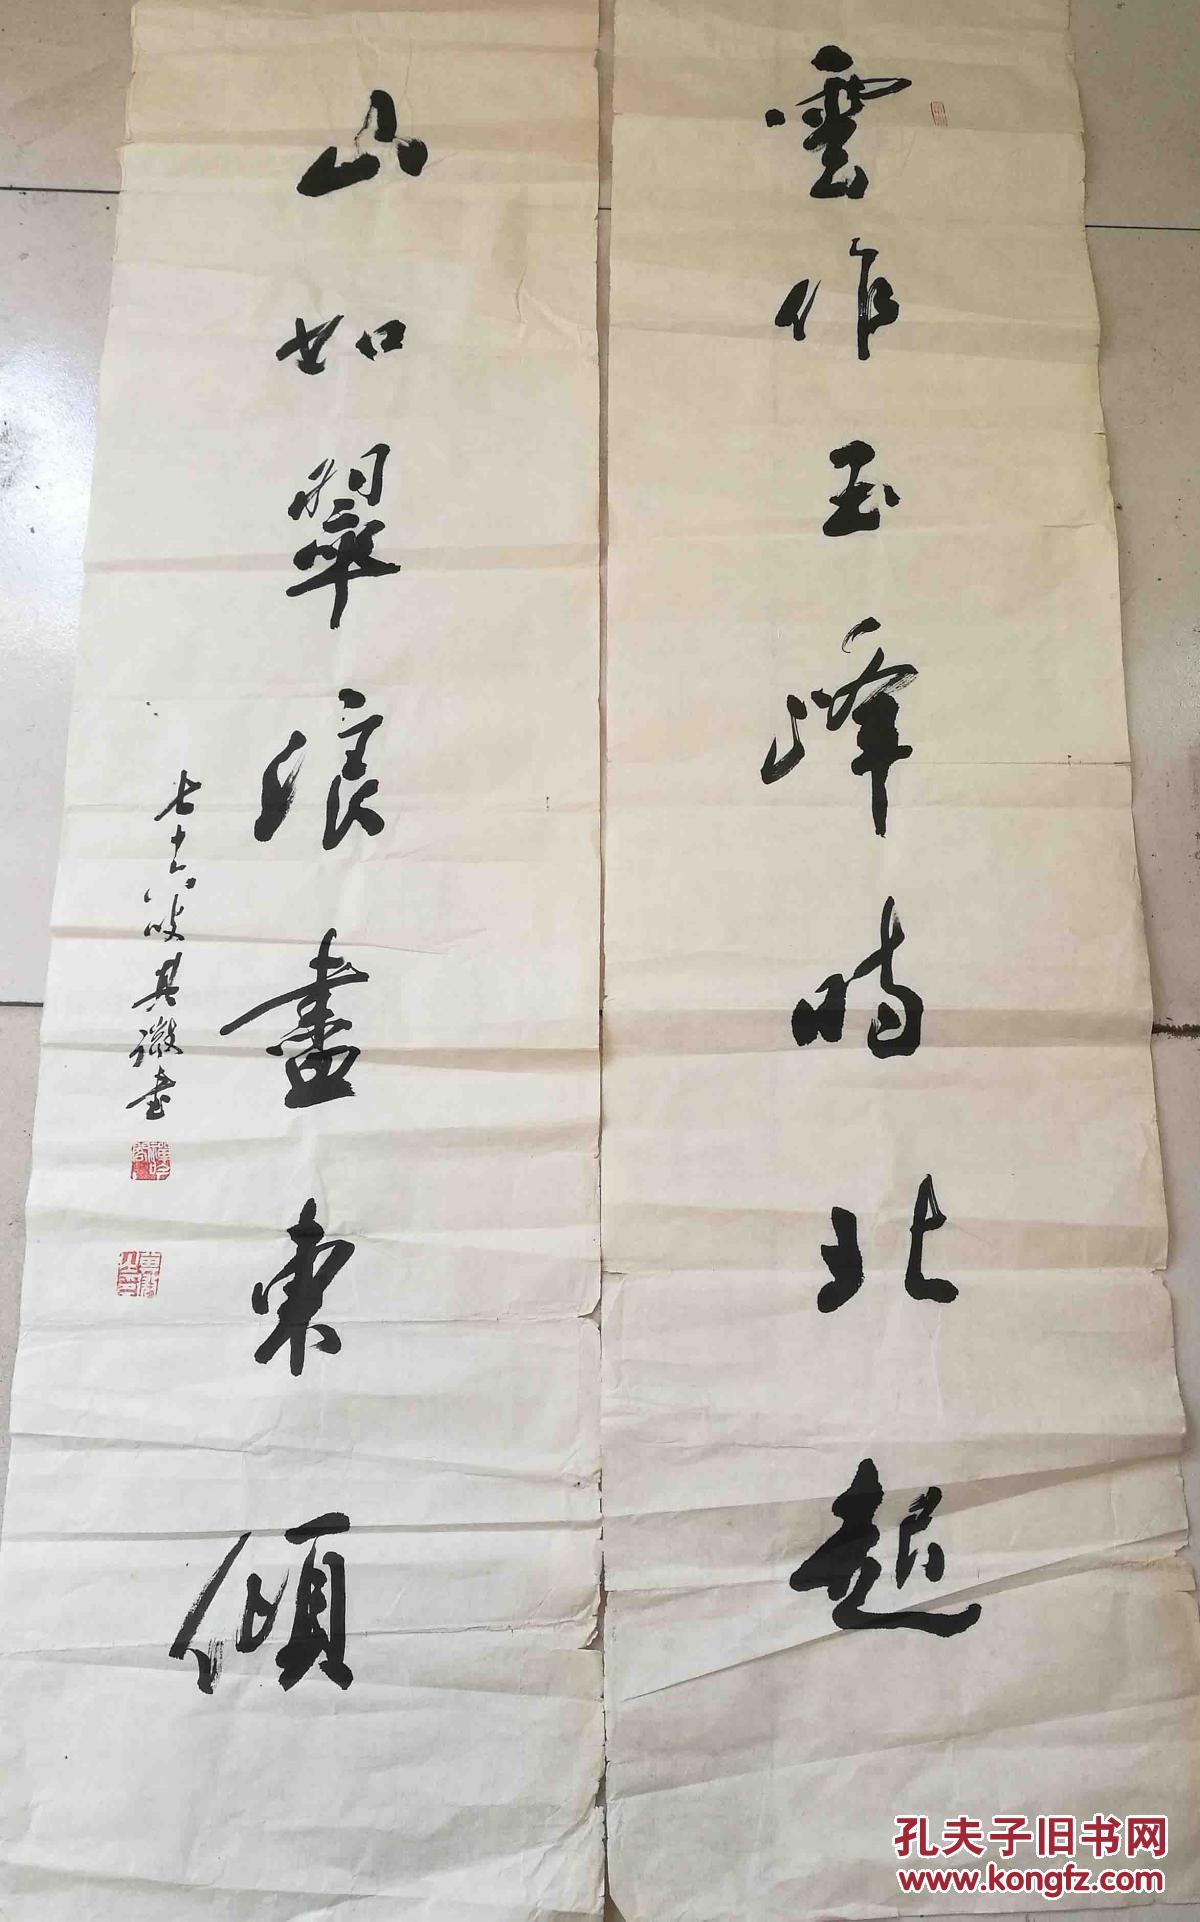 雲作玉峰時北起
山如翠浪盡東傾
七十六叟其微書
孔夫子旧书网
www.kongfz.com